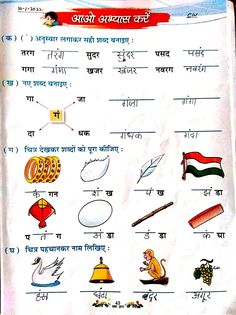 10-5-2022
आओ अभ्यास करें
(क) (ं) अनुस्वार लगाकर सही शब्द बनाइए :
तरग तरंग सुदर सुंदर पसद पसंद
गगा गंगा खजर खंजर नवरग नवरंग
(ख) नए शब्द बनाइए :
गा जा गंजा गंगा
गं
दा धक गंधक गंदा
(ग) चित्र देखकर शब्दों को पूरा कीजिए :
कं गन शं ख पं ख झं डा
प तं ग अं डा डं डा कं घा
(घ) चित्र पहचानकर नाम लिखिए :
हंस घंटी बंदर अंगूर